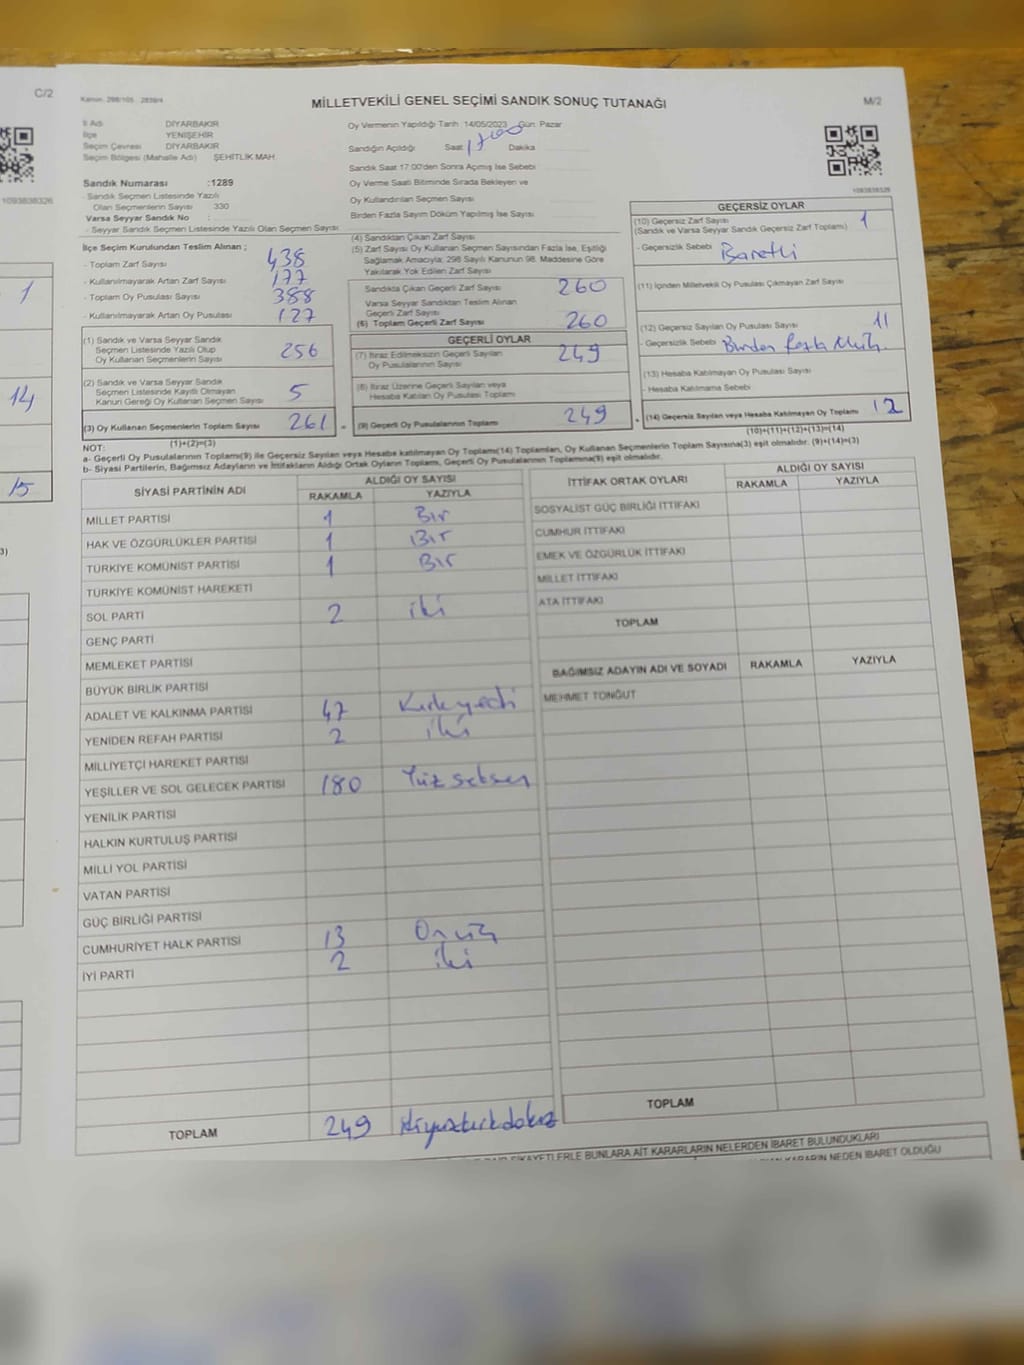 C/2
1093838326
1
14
15
3)
Kanun: 298/105 , 2839/4
MİLLETVEKİLİ GENEL SEÇİMİ SANDIK SONUÇ TUTANAĞI
M/2
İl Adı DİYARBAKIR
İlçe YENİŞEHİR
Seçim Çevresi DİYARBAKIR
Seçim Bölgesi (Mahalle Adı) ŞEHİTLİK MAH.
Sandık Numarası :1289
- Sandık Seçmen Listesinde Yazılı
Olan Seçmenlerin Sayısı 330
Varsa Seyyar Sandık No :
- Seyyar Sandık Seçmen Listesinde Yazılı Olan Seçmen Sayısı
Oy Vermenin Yapıldığı Tarih 14/05/2023 Gün: Pazar
Sandığın Açıldığı Saat 17:00 Dakika
Sandık Saat 17:00'den Sonra Açımış İse Sebebi
Oy Verme Saati Bitiminde Sırada Bekleyen ve
Oy Kullandırılan Seçmen Sayısı
Birden Fazla Sayım Döküm Yapılmış İse Sayısı
1093838326
İlçe Seçim Kurulundan Teslim Alınan ;
- Toplam Zarf Sayısı 438
- Kullanılmayarak Artan Zarf Sayısı 177
- Toplam Oy Pusulası Sayısı 388
- Kullanılmayarak Artan Oy Pusulası 127
(1) Sandık ve Varsa Seyyar Sandık
Seçmen Listesinde Yazılı Olup
Oy Kullanan Seçmenlerin Sayısı 256
(2) Sandık ve Varsa Seyyar Sandık
Seçmen Listesinde Kayıtlı Olmayan
Kanun Gereği Oy Kullanan Seçmen Sayısı 5
(3) Oy Kullanan Seçmenlerin Toplam Sayısı 261
(1)+(2)=(3)
(4) Sandıktan Çıkan Zarf Sayısı
(5) Zarf Sayısı Oy Kullanan Seçmen Sayısından Fazla İse, Eşitliği
Sağlamak Amacıyla; 298 Sayılı Kanunun 98. Maddesine Göre
Yakılarak Yok Edilen Zarf Sayısı
Sandıkta Çıkan Geçerli Zarf Sayısı 260
Varsa Seyyar Sandıktan Teslim Alınan
Geçerli Zarf Sayısı
(6) Toplam Geçerli Zarf Sayısı 260
GEÇERLİ OYLAR
(7) İtiraz Edilmeksizin Geçerli Sayılan
Oy Pusulalarının Sayısı 249
(8) İtiraz Üzerine Geçerli Sayılan veya
Hesaba Katılan Oy Pusulası Toplamı
(9) Geçerli Oy Pusulalarının Toplamı 249
GEÇERSİZ OYLAR
(10) Geçersiz Zarf Sayısı 1
(Sandık ve Varsa Seyyar Sandık Geçersiz Zarf Toplamı)
- Geçersizlik Sebebi
(11) İçinden Milletvekili Oy Pusulası Çıkmayan Zarf Sayısı
(12) Geçersiz Sayılan Oy Pusulası Sayısı 11
- Geçersizlik Sebebi Birden fazla
(13) Hesaba Katılmayan Oy Pusulası Sayısı
- Hesaba Katılmama Sebebi
(14) Geçersiz Sayılan veya Hesaba Katılmayan Oy Toplamı 12
(10)+(11)+(12)+(13)=(14)
NOT:
a- Geçerli Oy Pusulalarının Toplamı(9) ile Geçersiz Sayılan veya Hesaba katılmayan Oy Toplamı(14) Toplamları, Oy Kullanan Seçmenlerin Toplam Sayısına(3) eşit olmalıdır. (9)+(14)=(3)
b- Siyasi Partilerin, Bağımsız Adayların ve İttifakların Aldığı Ortak Oyların Toplamı, Geçerli Oy Pusulalarının Toplamına(9) eşit olmalıdır.
SİYASİ PARTİNİN ADI ALDIĞI OY SAYISI
RAKAMLA YAZIYLA
MİLLET PARTİSİ 1 Bir
HAK VE ÖZGÜRLÜKLER PARTİSİ 1 Bir
TÜRKİYE KOMÜNİST PARTİSİ 1 Bir
TÜRKİYE KOMÜNİST HAREKETİ
SOL PARTİ 2 iki
GENÇ PARTİ
MEMLEKET PARTİSİ
BÜYÜK BİRLİK PARTİSİ
ADALET VE KALKINMA PARTİSİ 47 Kırkyedi
YENİDEN REFAH PARTİSİ 2 iki
MİLLİYETÇİ HAREKET PARTİSİ
YEŞİLLER VE SOL GELECEK PARTİSİ 180 Yüz seksen
YENİLİK PARTİSİ
HALKIN KURTULUŞ PARTİSİ
MİLLİ YOL PARTİSİ
VATAN PARTİSİ
GÜÇ BİRLİĞİ PARTİSİ
CUMHURİYET HALK PARTİSİ 13 Onüç
İYİ PARTİ 2 iki
TOPLAM 249 ikiyüzkırkdokuz
İTTİFAK ORTAK OYLARI ALDIĞI OY SAYISI
RAKAMLA YAZIYLA
SOSYALİST GÜÇ BİRLİĞİ İTTİFAKI
CUMHUR İTTİFAKI
EMEK VE ÖZGÜRLÜK İTTİFAKI
MİLLET İTTİFAKI
ATA İTTİFAKI
TOPLAM
BAĞIMSIZ ADAYIN ADI VE SOYADI RAKAMLA YAZIYLA
MEHMET TONĞUT
TOPLAM
ŞİKAYETLERLE BUNLARA AİT KARARLARIN NELERDEN İBARET BULUNDUKLARI
KARARIN NEDEN İBARET OLDUĞU